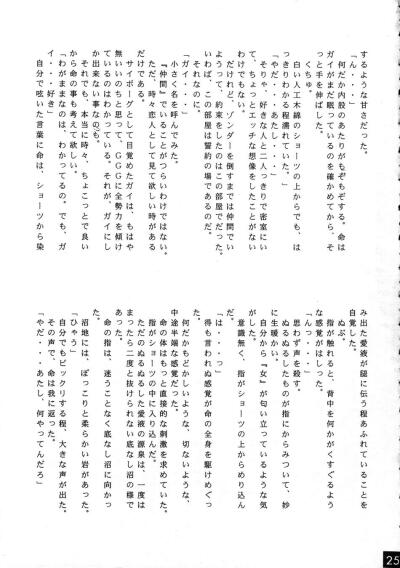 するような甘さだった。
「ん・・・・」
何だか内股のあたりがもぞもぞする。命は
ガイがまだ眠っているのを確かめてから、そ
っと手を伸ばした。
くちゅ。
白い人工木綿のショーツの上からでも、は
っきりわかる程濡れていた。
「やだ・・・あたし・・・・」
そりゃ、好きな人と二人っきりで密室にい
て、ちょっとエッチな想像をしたことがない
わけでもない。
だけれど、ゾンダーを倒すまでは仲間でい
ようって、約束をしたのはこの部屋でだった。
いわば、この部屋は誓約の場であるのだ。
それなのに。
「ガイ・・・・」
小さく名を呼んでみた。
『仲間』でいることがつらいわけではない。
ただ、時々恋人として見て欲しい時がある
だけである。
サイボーグとして目覚めたガイは、もはや
無いいのちと思って、ＧＧＧに全勢力を傾け
ているのはわかっている。それが、ガイにし
か出来ない事なのも。
それでも、本当に時々、ちょこっとで良い
から命の事も考えて欲しい。
「わがままなのは、わかってるの。でも、ガ
イ・・・好き」
自分で呟いた言葉に命は、ショーツから染
み出た愛液が腿に伝う程あふれていることを
自覚した。
ぬぷ。
指が触れると、背中を何かがくすぐるよう
な感覚がはしった。
「んっ・・・・」
思わず声を殺す。
ぬるぬるしたものが指にからみついて、妙
に生暖かい。
自分から『女』が匂い立っているような気
がした。
意識無く、指がショーツの上からめり込ん
だ。
「は・・・っ」
得も言われぬ感覚が命の全身を駆けめぐっ
た。
何だかもどかしいような、切ないような、
中途半端な感覚だった。
命の体はもっと直接的な刺激を求めていた。
指がショーツの中に入り込んだ。
ただのぬるぬるした愛液の源泉は、一度は
まったら二度と抜けられない底なし沼の様で
あった。
命の指は、迷うことなく底なし沼に向かっ
た。
沼地には、ぽっこりと柔らかい岩があった。
「ひゃう」
自分でもビックリする程、大きな声が出た。
その声で、命は我に返った。
「やだ・・・あたし、何やってんだろ」
25